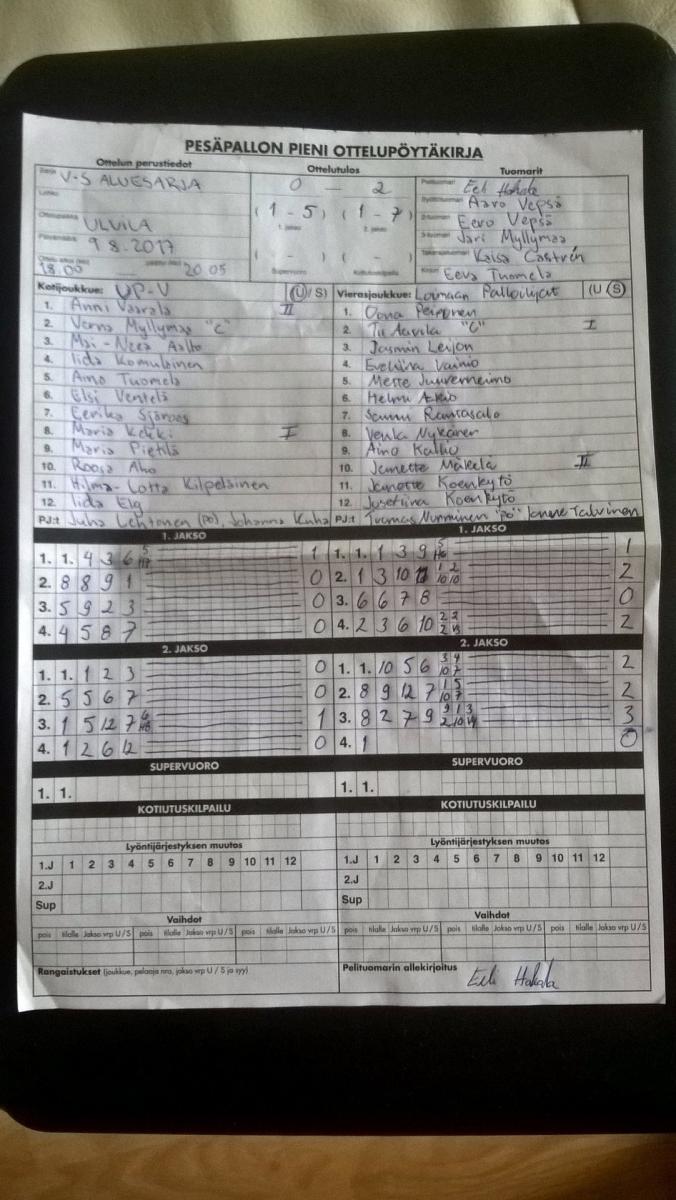 PESÄPALLON PIENI OTTELUPÖYTÄKIRJA
Ottelun perustiedot Ottelutulos Tuomarit
Sarja V-S ALUESARJA
0 – 2
Pelituomari Eeli Hakala
Lohko
Syöttötuomari Aaro Vepsä
Ottelupaikka ULVILA
(1 - 5) (1 - 7)
1. jakso 2. jakso
2-tuomari Eero Vepsä
Päivämäärä 9 8.2017
( - ) ( - )
3-tuomari Jari Myllymaa
Takarajatuomari Kaisa Castrén
18.00 20.05
Supervuoro Kotiutuskilpailu
Kirjuri Eeva Tuomela
Kotijoukkue: UP-V (U/S)
1. Anni Vaarala II
2. Verna Myllymaa "C"
3. Mai-Neea Aalto
4. Iida Komulainen
5. Aino Tuomela
6. Elsi Ventelä
7. Eerika Sjöroos
8. Maria Kekki I
9. Maria Pietilä
10. Roosa Aho
11. Hilma-Lotta Kilpeläinen
12. Iida Elg
PJ:t Juha Lehtonen (po), Johanna Kuha
Vierasjoukkue: Loimaan Palloilijat (U/S)
1. Oona Peiponen
2. "C" I
3. Jasmin Leijon
4. Eveliina Vainio
5. Mette Juurenheimo
6. Helmi
7. Sanni Rantasalo
8. Venla Nykänen
9. Aino Kallio
10. Jemette Mäkelä II
11. Janette Koenkytö
12. Josefiina Koenkytö
PJ:t Tuomas Nurminen "po" Janne Talvinen
1. JAKSO
1. 1. 4 3 6 5 1
2. 8 8 9 1 0
3. 5 9 2 3 0
4. 4 5 8 7 0
1. JAKSO
1. 1. 1 3 9 5 1
2. 1 3 10 1 2 10 10 2
3. 6 6 7 8 0
4. 2 3 6 10 2 2 2
2. JAKSO
1. 1. 1 2 3 0
2. 5 5 6 7 0
3. 1 5 12 7 6 1
4. 1 2 6 12 0
2. JAKSO
1. 1. 10 5 6 3 4 10 7 2
2. 8 9 12 7 1 5 10 7 2
3. 8 2 7 9 9 1 3 2 10 3
4. 1 0
SUPERVUORO
1. 1.
SUPERVUORO
1. 1.
KOTIUTUSKILPAILU
KOTIUTUSKILPAILU
Lyöntijärjestyksen muutos
1.J 1 2 3 4 5 6 7 8 9 10 11 12
2.J
Sup
Lyöntijärjestyksen muutos
1.J 1 2 3 4 5 6 7 8 9 10 11 12
2.J
Sup
Vaihdot
pois tilalle Jakso vrp U/S pois tilalle Jakso vrp U/S pois tilalle Jakso vrp U/S
Vaihdot
pois tilalle Jakso vrp U/S pois tilalle Jakso vrp U/S pois tilalle Jakso vrp U/S
Rangaistukset (joukkue, pelaaja nro, jakso vrp U / S ja syy)
Pelituomarin allekirjoitus Eeli Hakala